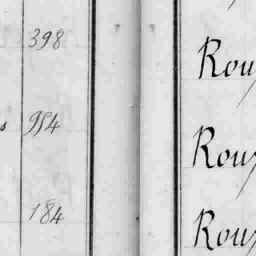 398 Rou
s 954 Rou
184 Rou